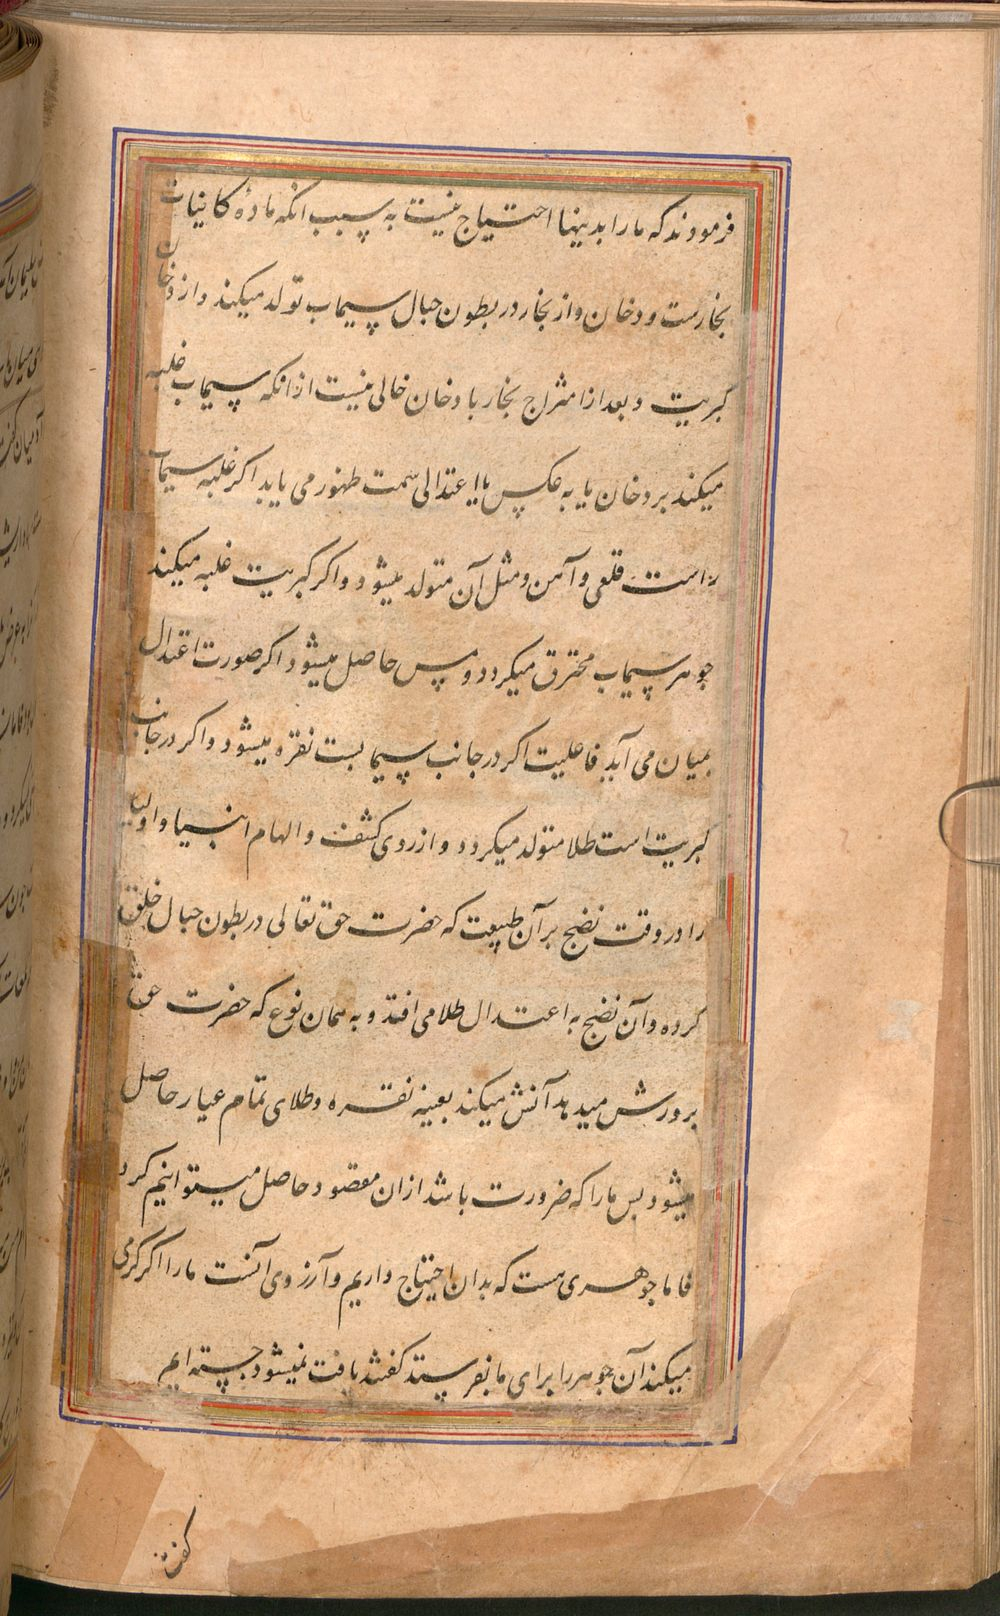 فرمودند که ما را بدینها احتیاج نیست به سبب انکه ماده کانیات
بخارست و دخان و از بخار در بطون جبال سیماب تولد میکند و از دخان
کبریت و بعد از امتزاج بخار با دخان خالی نیست از انکه سیماب غلبه
میکند بر دخان یا به عکس یا اعتدالی سمت ظهور می یابد اکر غلبه سیماب
راست قلعی و آهن و مثل آن متولد میشود و اکر کبریت غلبه میکند
جوهر سیماب محترق میکردد و مس حاصل میشود اکر صورت اعتدال
بمیان می آید فاعلیت اکر در جانب سیما بست نقره میشود و اکر در جانب
کبریت است طلا متولد میکردد و از روی کشف و الهام انبیا و اولیا
را در وقت نضج بر آن طبیعت که حضرت حق تعالی در بطون جبال خلق
کرده و آن نضج به اعتدال طلا می افتد و به همان نوع که حضرت حق
پرورش میدهد آتش میکند بعینه نقره و طلای تمام عیار حاصل
میشود پس ما را که ضرورت باشد ازان مقصود حاصل میتوانیم کرد
فاما جوهری هست که بدان احتیاج داریم و آرزوی آنست ما را اکر کرمی
میکند آن جوهر را برای ما بفرستد کفتند یافت نمیشود جسته ایم
کفت